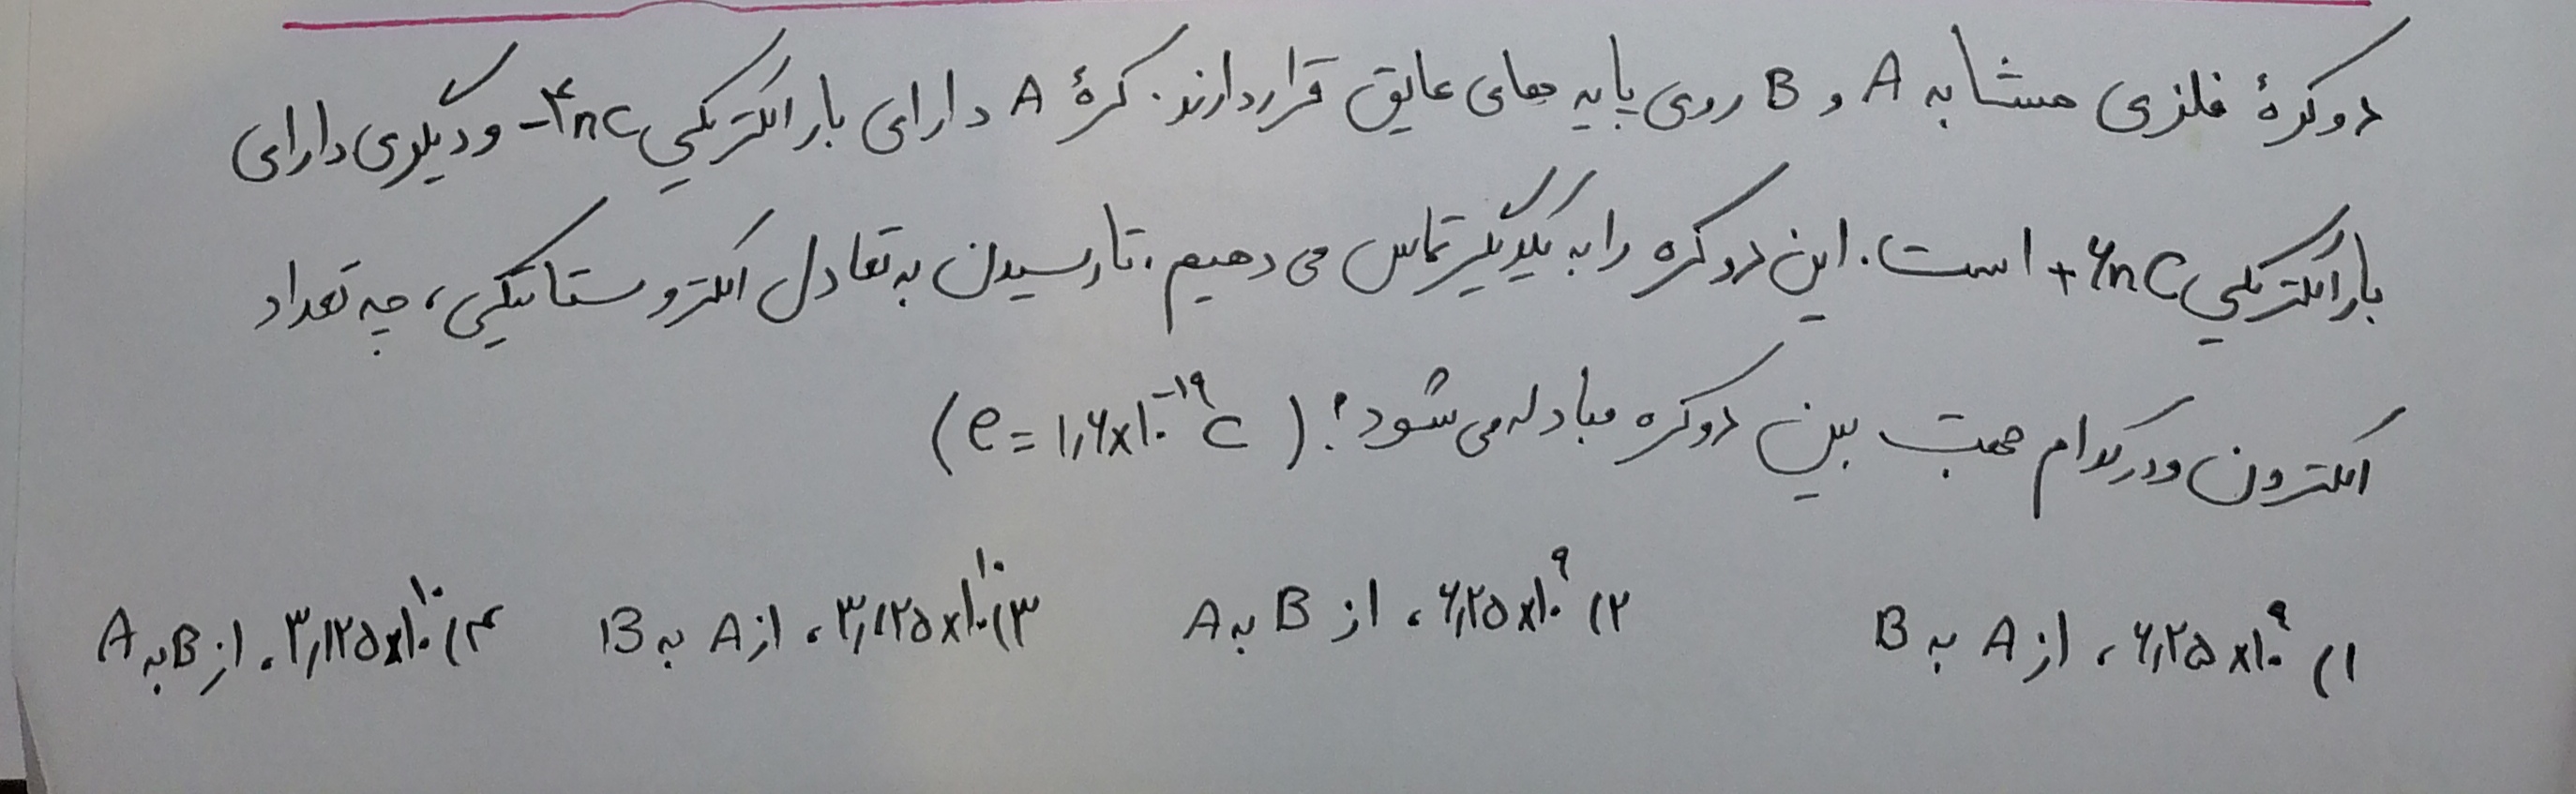 دو کرهٔ فلزی مشابه A و B روی پایه های عایق قرار دارند. کرهٔ A دارای بار الکتریکی -۴nC و دیگری دارای
بار الکتریکی +۶nC است. این دو کره را به یکدیگر تماس می دهیم. تا رسیدن به تعادل الکتروستاتیکی، چه تعداد
الکترون و در کدام جهت بین دو کره مبادله می شود؟ (e = ۱٫۶×۱۰⁻¹⁹ C)
۱) ۶٫۲۵×۱۰⁹ ، از A به B ۲) ۶٫۲۵×۱۰⁹ ، از B به A ۳) ۳٫۱۲۵×۱۰¹⁰ ، از A به B ۴) ۳٫۱۲۵×۱۰¹⁰ ، از B به A